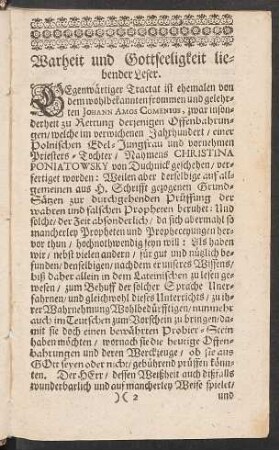 Warheit und Gottseeligkeit lie-
bender Leser.
GEgenwärtiger Tractat ist ehemalen von
dem wohlbekannten frommen und gelehr-
ten JOHANN AMOS COMENIUS, zwar inson-
derheit zu Rettung derjenigen Offenbahrun-
gen/ welche im verwichenen Jahrhundert/ einer
Polnischen Edel-Jungfrau und vornehmen
Priesters-Tochter/ Nahmens CHRISTINA
PONIATOWSKY von Duchnick geschehen/ ver-
fertiget worden: Weilen aber derselbige auf all-
gemeinen aus H. Schrifft gezogenen Grund-
Sätzen zur durchgehenden Prüffung der
wahren und falschen Propheten beruhet: Und
solche/ der Zeit absonderlich/ da sich abermahl so
mancherley Propheten und Prophezeyungen her-
vor thun/ hochnothwendig seyn will: Als haben
wir/ nebst vielen andern/ für gut und nützlich be-
funden/ denselbigen/ nachdem er unseres Wissens/
biß daher allein in dem Lateinischen zu lesen gewe-
sen/ zum Behuff der solcher Sprache Uner-
fahrnen/ und gleichwohl dieses Unterrichts/ zu ih-
rer Wahrnehmung Wohlbedürfftigen/ nunmehr
auch im Teutschen zum Vorschein zu bringen/ da-
mit sie doch einen bewährten Probier-Stein
haben möchten/ wornach sie die heutige Offen-
bahrungen und deren Werckzeuge/ ob sie aus
GOtt seyen oder nicht/ gebührend prüffen könn-
ten. Der HErr/ dessen Weißheit auch dißfalls
wunderbarlich und auf mancherley Weise spielet/
)( 2 und